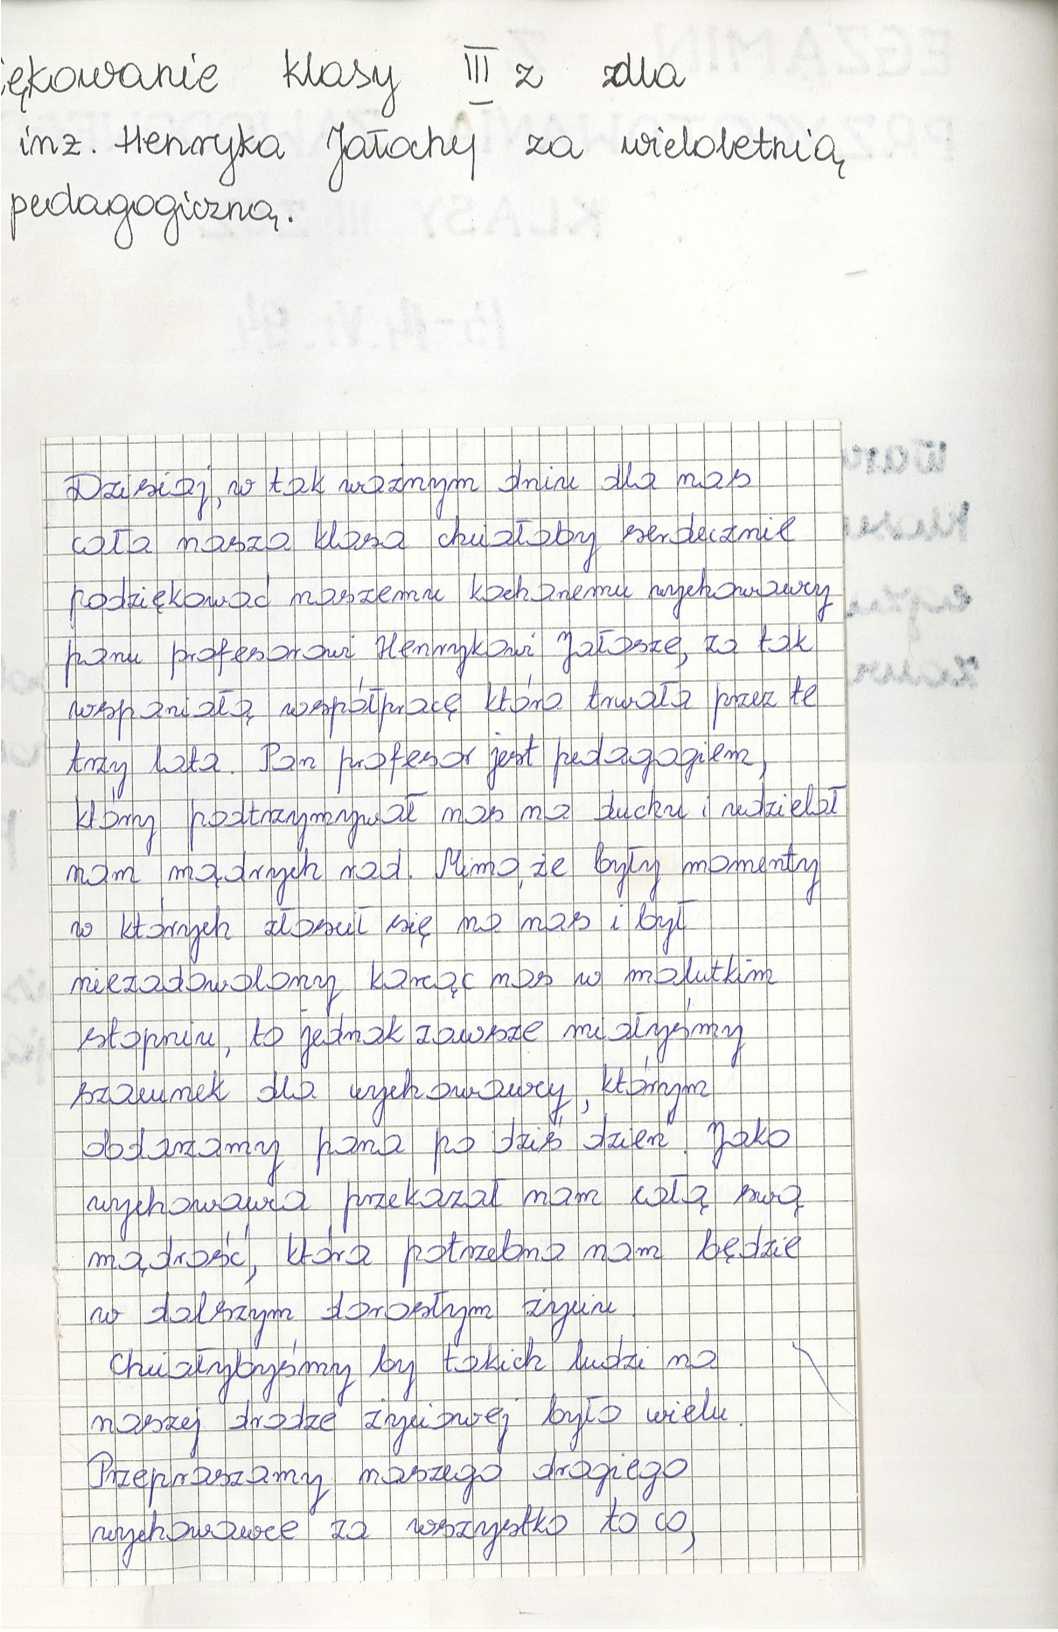 iękowanie klasy III z dla
inż. Henryka Jałochy za wieloletnią
pedagogiczną.
Dzisiaj, w tak ważnym dniu dla nas
cała nasza klasa chciałaby serdecznie
podziękować naszemu kochanemu wychowawcy
panu profesorowi Henrykowi Jałosze, za tak
wspaniałą współpracę która trwała przez te
trzy lata. Pan profesor jest pedagogiem,
który podtrzymywał nas na duchu i udzielał
nam mądrych rad. Mimo, że były momenty
w których złościł się na nas i był
niezadowolony karcąc nas w malutkim
stopniu, to jednak zawsze miałyśmy
szacunek dla wychowawcy, którym
obdarzamy pana po dziś dzień. Jako
wychowawca przekazał nam całą swą
mądrość, która potrzebna nam będzie
w dalszym dorosłym życiu.
Chciałybyśmy by takich ludzi na
naszej drodze życiowej było wielu.
Przepraszamy naszego drogiego
wychowawce za wszystko to co,